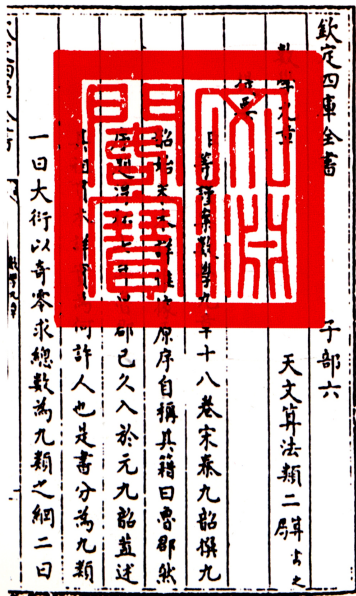 欽定四庫全書 子部六
數學九章 天文算法類二 算書之
提要
等謹案數學九章十八卷宋秦九韶撰九
韶始末未詳惟據原序自稱其籍曰魯郡然
序題淳祐七年魯郡已久入於元九韶蓋述
何許人也是書分為九類
一曰大衍以奇零求總數為九類之綱二曰
數學九章
文淵
閣寶